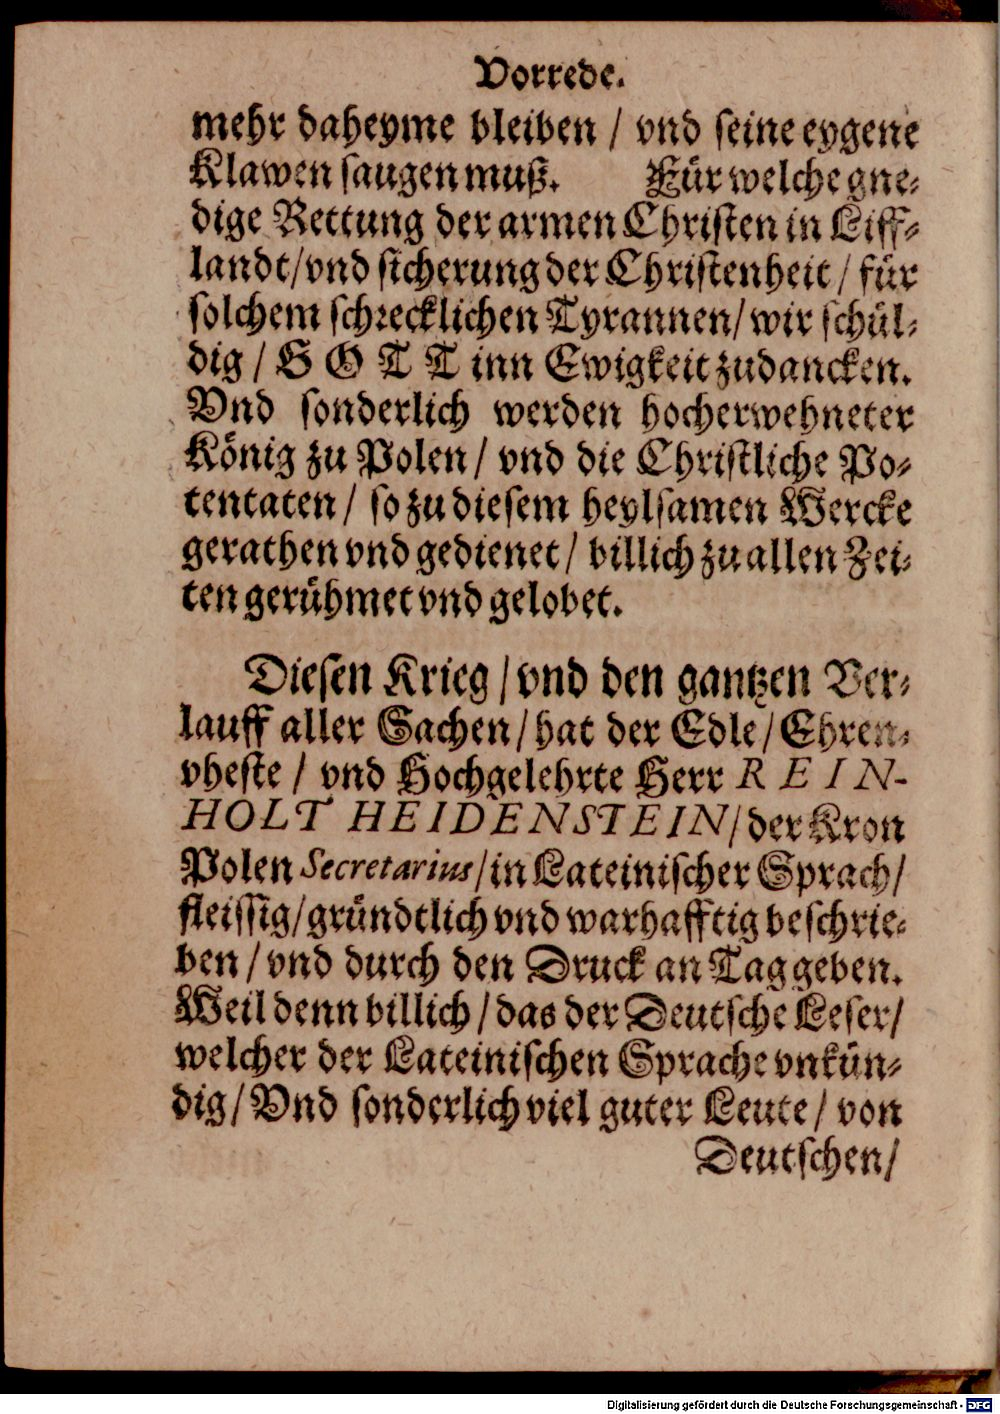 Vorrede.
mehr daheyme bleiben / vnd seine eygene
Klawen saugen muß. Für welche gne-
dige Rettung der armen Christen in Liff-
landt/vnd sicherung der Christenheit / für
solchem schrecklichen Tyrannen/ wir schül-
dig / G O T T inn Ewigkeit zudancken.
Vnd sonderlich werden hocherwehneter
König zu Polen / vnd die Christliche Po-
tentaten / so zu diesem heylsamen Wercke
gerathen vnd gedienet / billich zu allen Zei-
ten gerühmet vnd gelobet.
Diesen Krieg / vnd den gantzen Ver-
lauff aller Sachen / hat der Edle / Ehren-
vheste / vnd Hochgelehrte Herr R E I N-
HOLT HEIDENSTEIN/ der Kron
Polen Secretarius/in Lateinischer Sprach/
fleissig/gründtlich vnd warhafftig beschrie-
ben / vnd durch den Druck an Tag geben.
Weil denn billich / das der Deutsche Leser/
welcher der Lateinischen Sprache vnkün-
dig / Vnd sonderlich viel guter Leute / von
Deutschen/
Digitalisierung gefördert durch die Deutsche Forschungsgemeinschaft - DFG